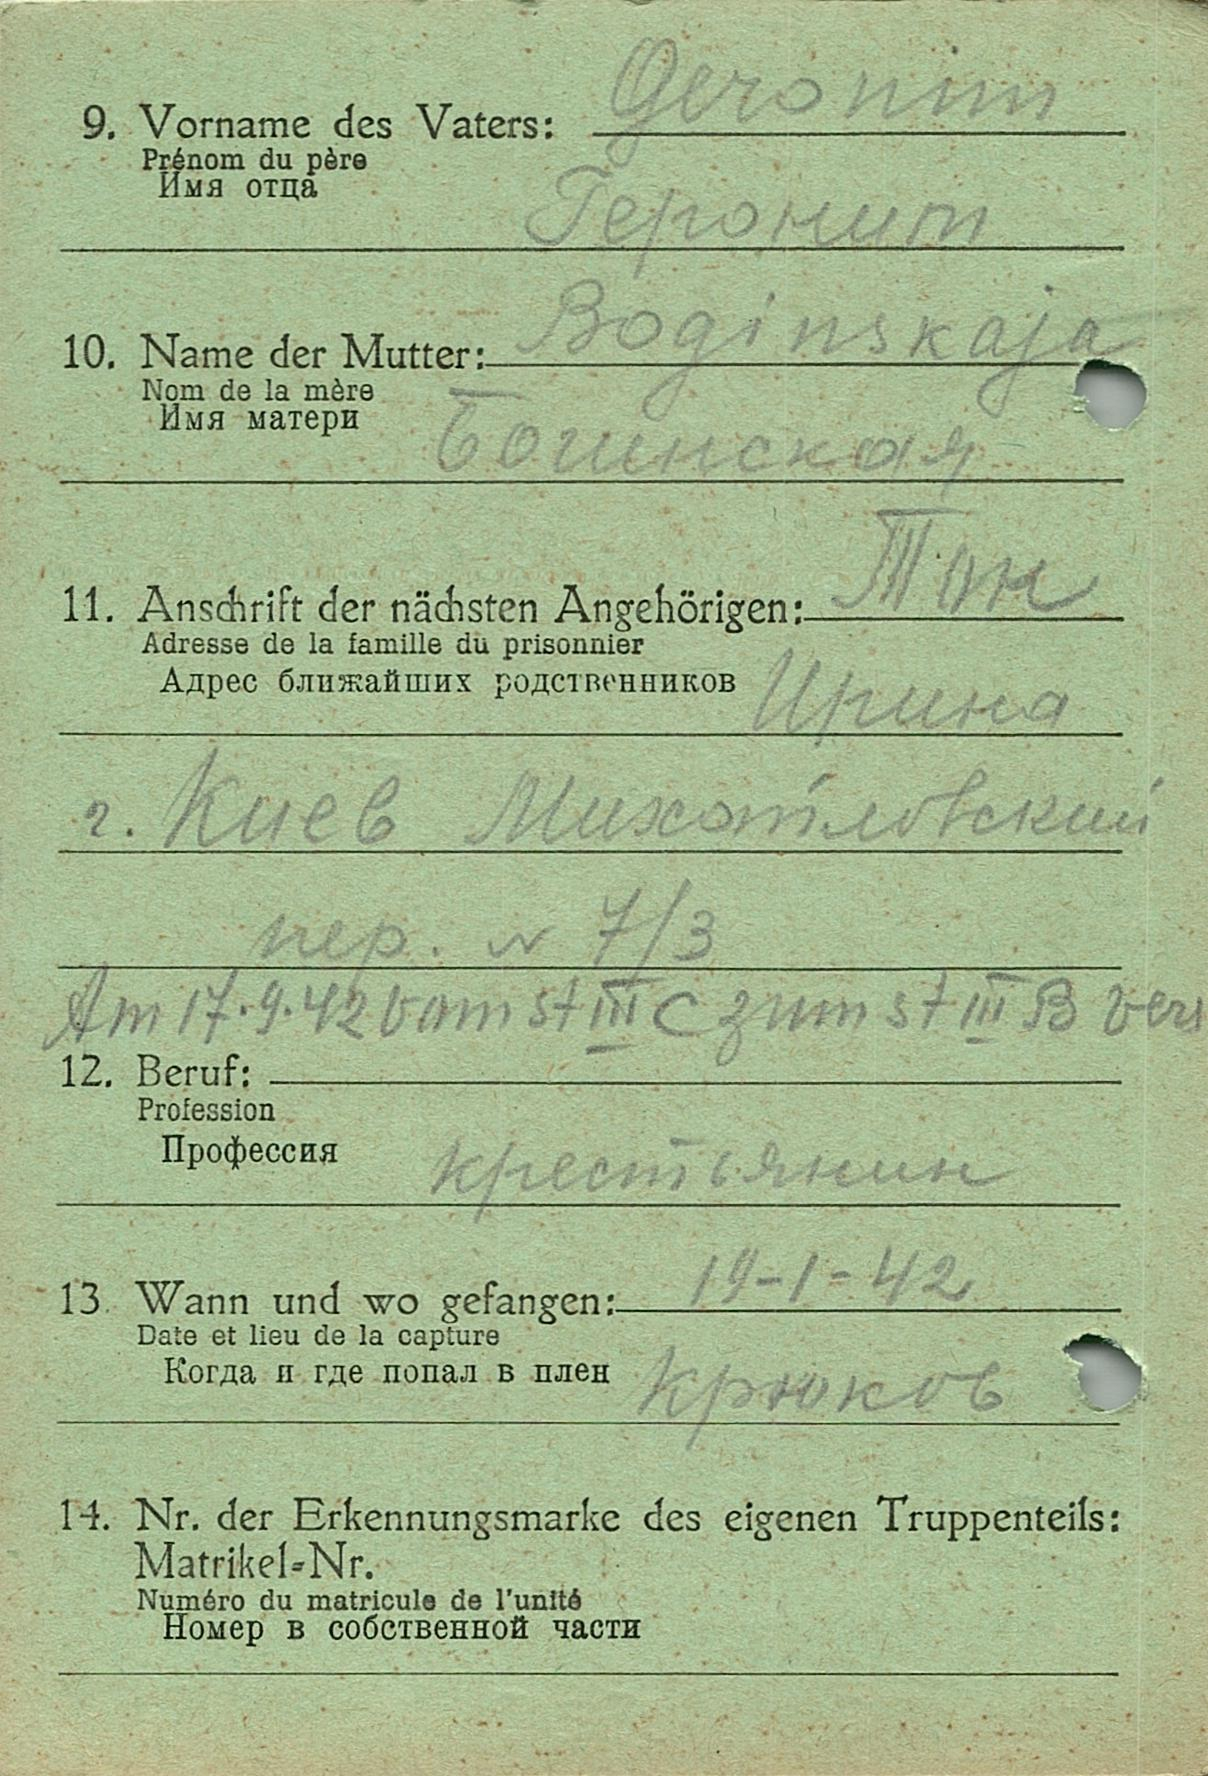 9. Vorname des Vaters: Geronim
Prénom du père
Имя отца
Героним
10. Name der Mutter: Boginskaja
Nom de la mère
Имя матери
Богинская
11. Anschrift der nächsten Angehörigen:
Adresse de la famille du prisonnier
Адрес ближайших родственников Ирина
г. Киев Михайловский
пер. N 7/3
Am 17.9.42 vom st III C zum st III B vers
12. Beruf:
Profession
Профессия
крестьянин
13. Wann und wo gefangen: 19-1-42
Date et lieu de la capture
Когда и где попал в плен Крюков
14. Nr. der Erkennungsmarke des eigenen Truppenteils:
Matrikel-Nr.
Numéro du matricule de l'unité
Номер в собственной части